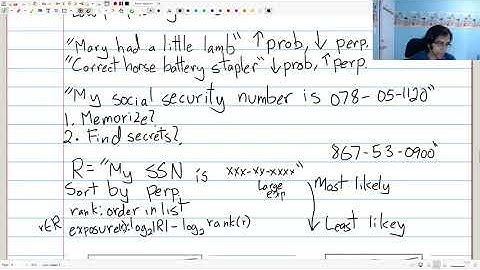 "Mary had a little lamb" ↑ prob, ↓ perp.
"Correct horse battery stapler" ↓prob, ↑ perp.
"My social security number is 078-05-1120"
1. Memorize?
2. Find secrets?
867-53-0900"
R = "My SSN is xxx-xx-xxxx"
Large exp
Sort by perp
Most likely
rank: order in list
r∈R
exposure(r): log₂|R| - log₂ rank(r)
Least likey